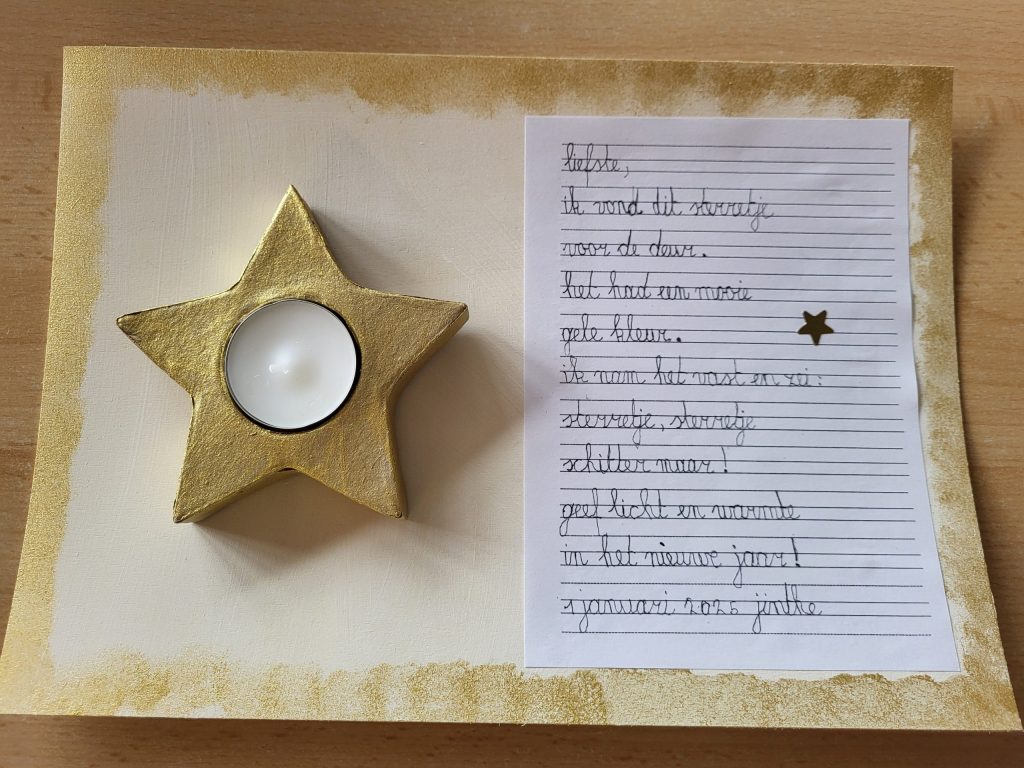 liefste,
ik vond dit sterretje
voor de deur.
het had een mooie
gele kleur.
ik nam het vast en zei:
sterretje, sterretje
schitter maar!
geef licht en warmte
in het nieuwe jaar!
1 januari 2025 jintke